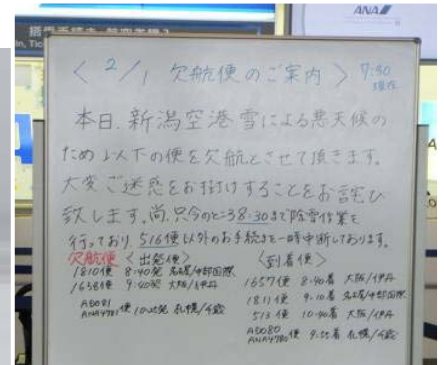 ANA
搭乗手続き・航空券購入?
In, Tic
< 2/1 欠航便のご案内 > 7:30 現在
本日、新潟空港雪による悪天候の
ため以下の便を欠航とさせて頂きます。
大変ご迷惑をお掛けすることをお詫び
致します。尚、只今のところ8:30まで除雪作業を
行っており、516便以外のお手続きを一時中断しております。
欠航便 <出発便>
1810便 8:40発 名古屋/中部国際
1658便 9:40発 大阪/伊丹
ADO81
ANA4781便 10:25発 札幌/千歳
<到着便>
1657便 8:40着 大阪/伊丹
1811便 9:10着 名古屋/中部国際
513便 10:40着 大阪/伊丹
ADO80
ANA4780便 9:55着 札幌/千歳